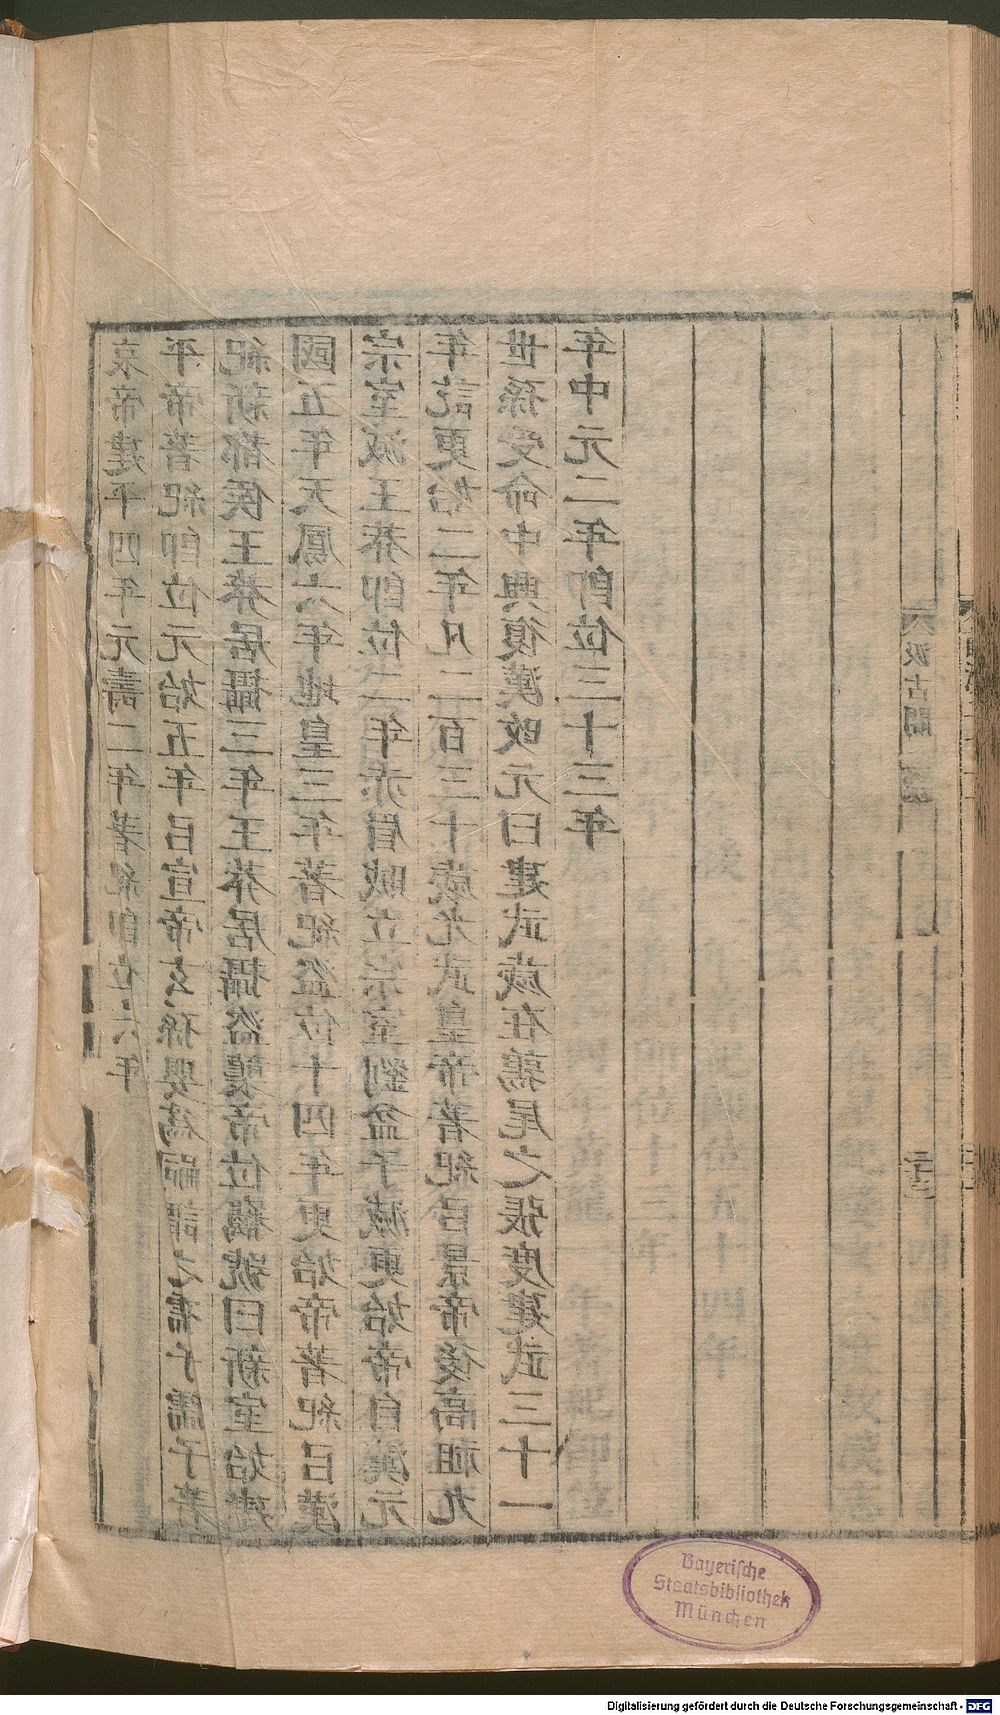 哀帝建平四年元壽二年著紀即位六年
平帝著紀即位元始五年㠯宣帝玄孫嬰爲嗣謂之孺子孺子著
紀新都侯王莽居攝三年王莽居攝盜襲帝位竊號曰新室始建
國五年天鳳六年地皇三年著紀盜位十四年更始帝著紀㠯漢
宗室滅王莽即位二年赤眉賊立宗室劉盆子滅更始帝自漢元
年訖更始二年凡二百三十歲光武皇帝著紀㠯景帝後高祖九
世孫受命中興復漢改元曰建武歲在鶉尾之張度建武三十一
年中元二年即位三十三年
汲古閣
Bayerische
Staatsbibliothek
München
Digitalisierung gefördert durch die Deutsche Forschungsgemeinschaft - DFG